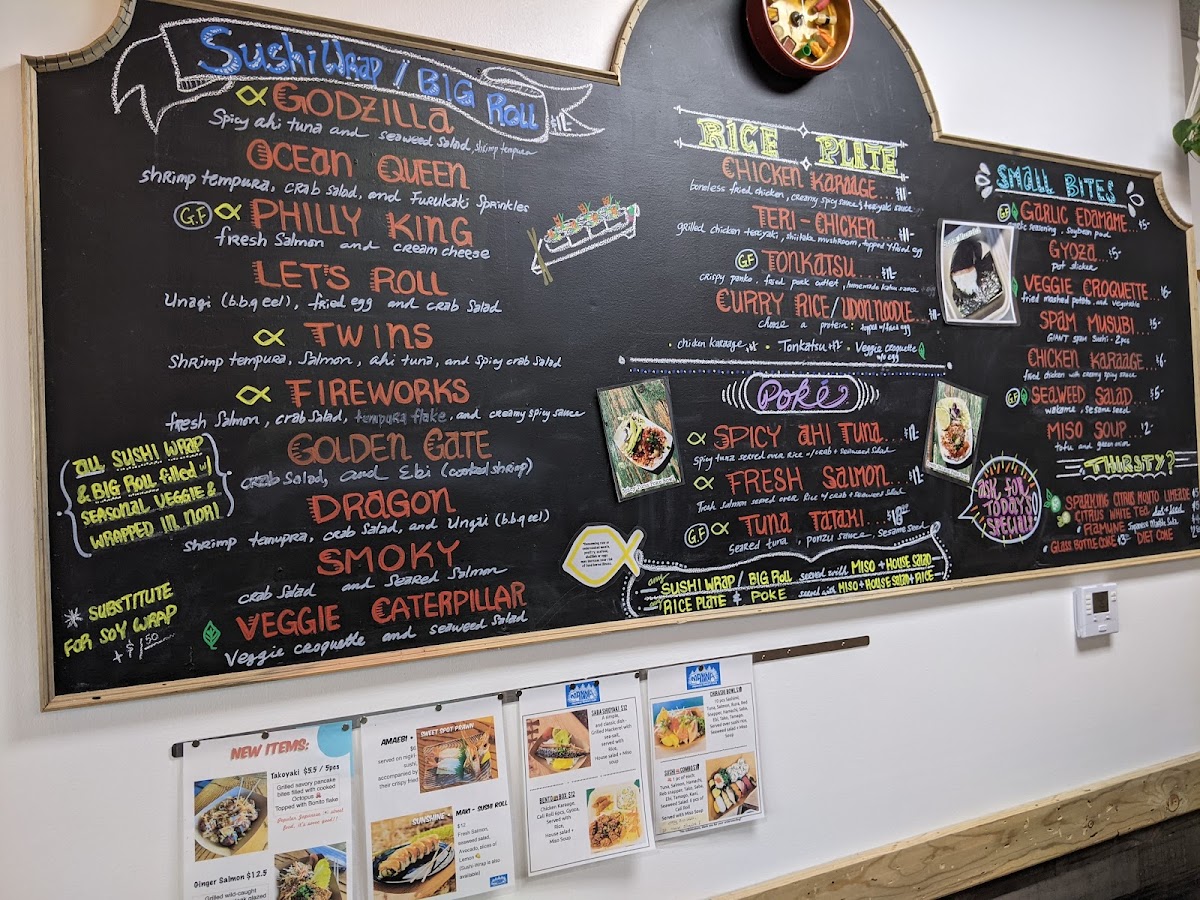 Sushi Wrap / BIG ROLL $12-
GODZILLA
Spicy ahi tuna and seaweed salad, shrimp tempura
OCEAN QUEEN
shrimp tempura, crab salad, and Furukaki Sprinkles
G.F PHILLY KING
fresh Salmon and cream cheese
LET'S ROLL
Unagi (b.b.q eel), fried egg and crab Salad
TWINS
Shrimp tempura, Salmon, ahi tuna, and Spicy crab Salad
FIREWORKS
fresh Salmon, crab Salad, tempura flake, and creamy spicy sauce
GOLDEN GATE
crab Salad, and Ebi (cooked shrimp)
DRAGON
shrimp temupra, crab Salad, and Ungai (b.b.q eel)
SMOKY
crab Salad and Seared Salmon
VEGGIE CATERPILLAR
Veggie croquette and seaweed Salad
ALL SUSHI WRAP
& BIG ROLL filled w/
SEASONAL VEGGIE &
WRAPPED IN NORI
SUBSTITUTE
FOR SOY WRAP
+ $1.50
RICE PLATE
CHICKEN KARAAGE...$11-
boneless fried chicken, creamy spicy sauce & teriyaki sauce
TERI-CHICKEN...$11-
grilled chicken teriyaki, shiitake mushroom, topped w/fried egg
GF TONKATSU...$12-
crispy panko, fried pork cutlet, homemade katsu sauce
CURRY RICE/UDON NOODLE...
choose a protein: topped w/fried egg
• chicken karaage • Tonkatsu • Veggie croquette
w/o egg
Poké
SPICY AHI TUNA...$12-
Spicy tuna served over Rice w/ crab + Seaweed Salad
FRESH SALMON...$12-
Fresh salmon served over Rice w/ crab + Seaweed Salad
G.F TUNA TATAKI...
Seared tuna, ponzu sauce, sesame seed
any SUSHI WRAP / BIG ROLL served with MISO + HOUSE SALAD
RICE PLATE & POKE served with MISO + HOUSE SALAD + RICE
SMALL BITES
GF GARLIC EDAMAME...$5-
garlic seasoning, soybean pod
GYOZA...$5-
pot sticker
VEGGIE CROQUETTE...$6-
fried mashed potato, and vegetable
SPAM MUSUBI...$5-
GIANT spam Sushi - 2pcs
CHICKEN KARAAGE...$6-
fried chicken with creamy spicy sauce
GF SEAWEED SALAD...$5-
wakame, sesame seed
MISO SOUP...$2-
tofu and green onion
THIRSTY?
SPARKING CITRUS MOJITO LIMEADE
CITRUS WHITE TEA hot + iced
RAMUNE Japanese Marble Soda
GLASS BOTTLE COKE DIET COKE
ASK FOR
TODAY'S
SPECIAL!
NEW ITEMS:
Takoyaki $5.5 / 5pcs
Grilled savory pancake
bites filled with cooked
Octopus
Topped with Bonito flake
Ginger Salmon $12.5
Grilled wild-caught
AMAEBI
SWEET SPOT PRAWN
served on nigiri
sushi,
accompanied by
their crispy fried
SUNSHINE MAKI - SUSHI ROLL
$12
Fresh Salmon,
seaweed salad,
Avocado, slices of
Lemon
(Sushi-Wrap is also
available)
SABA SHIOYAKI $12
A simple,
and classic dish-
Grilled Mackerel with
sea-salt,
served with
Rice,
House salad + Miso
Soup
BENTO BOX $12
Chicken Karaage,
Cali Roll 6pcs, Gyoza,
Served with
Rice,
House salad +
Miso Soup
CHIRASHI BOWL